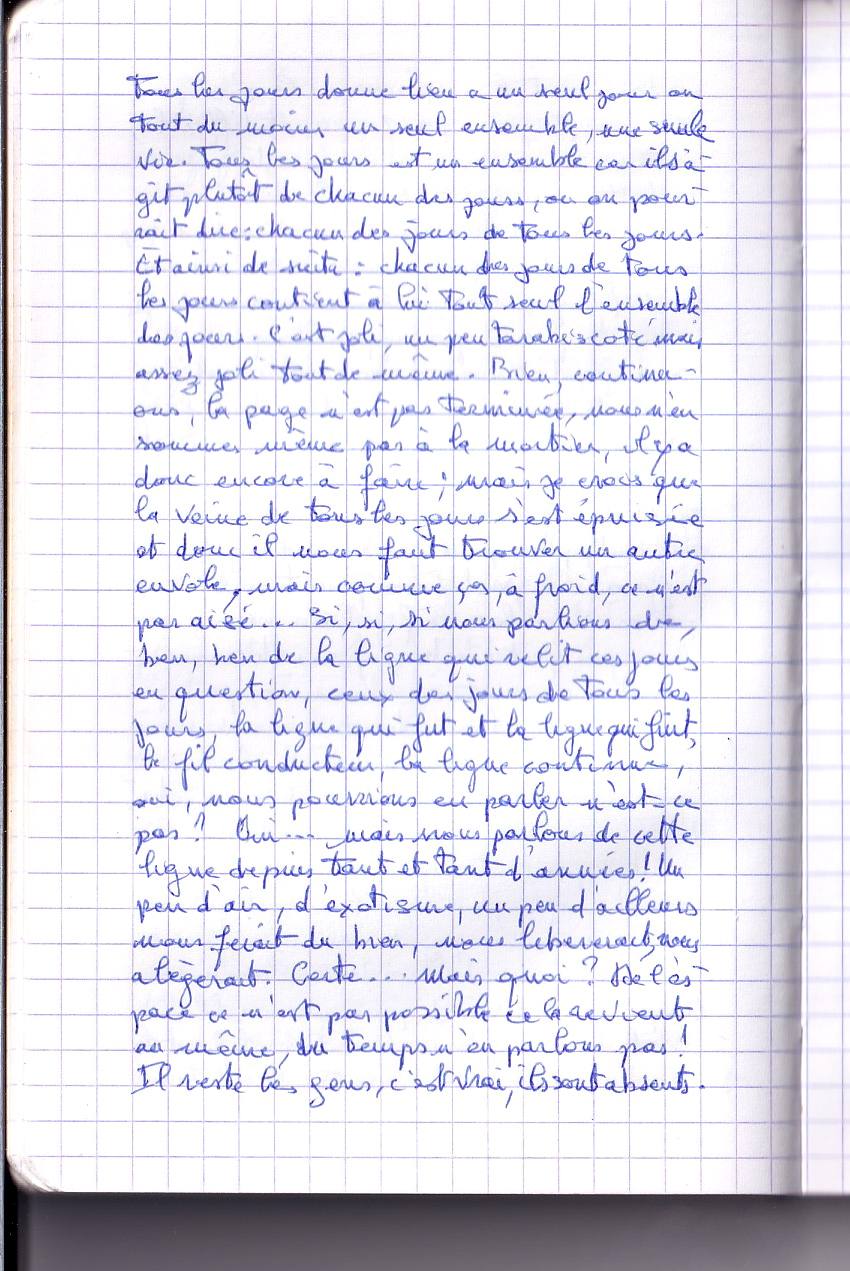 Tous les jours donne lieu a un seul jour ou
tout du moins un seul ensemble, une seule
vie. Tous les jours est un ensemble car il s'a-
git plutôt de chacun des jours, ou on pour-
rait dire : chacun des jours de tous les jours.
Et ainsi de suite : chacun des jours de tous
les jours contient à lui tout seul l'ensemble
des jours. C'est joli, un peu tarabiscoté mais
assez joli tout de même. Bien, continu-
ons, la page n'est pas terminée, nous n'en
sommes même pas à la moitier, il y a
donc encore à faire ; mais je crois que
la veine de tous les jours s'est épuisée
et donc il nous faut trouver un autre
envole, mais comme ça, à froid, ce n'est
pas aisé... Si, si, si nous parlions de,
ben, ben de la ligne qui relit ces jours
en question, ceux des jours de tous les
jours, la ligne qui fut et la ligne qui fint,
le fil conducteur, la ligne continue,
oui, nous pourrions en parler n'est-ce
pas ? Oui... mais nous parlons de cette
ligne depuis tant et tant d'années ! Un
peu d'air, d'exotisme, un peu d'ailleurs
nous ferait du bien, nous libererait, nous
alègerait. Certe... Mais quoi ? De l'es-
pace ce n'est pas possible cela revient
au même, du temps n'en parlons pas !
Il reste les gens, c'est vrai, ils sont absents.